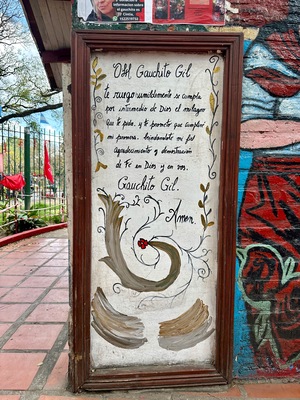 informacion sobre
el gauchito gil
Oh! Gauchito Gil.
te ruego umildemente se cumpla
por intermedio de Dios el milagro
que te pido, y te prometo que cumpliré
mi promesa. brindandote mi fiel
agradecimiento y demostración
de Fe en Dios y en vos.
Gauchito Gil.
Amen.